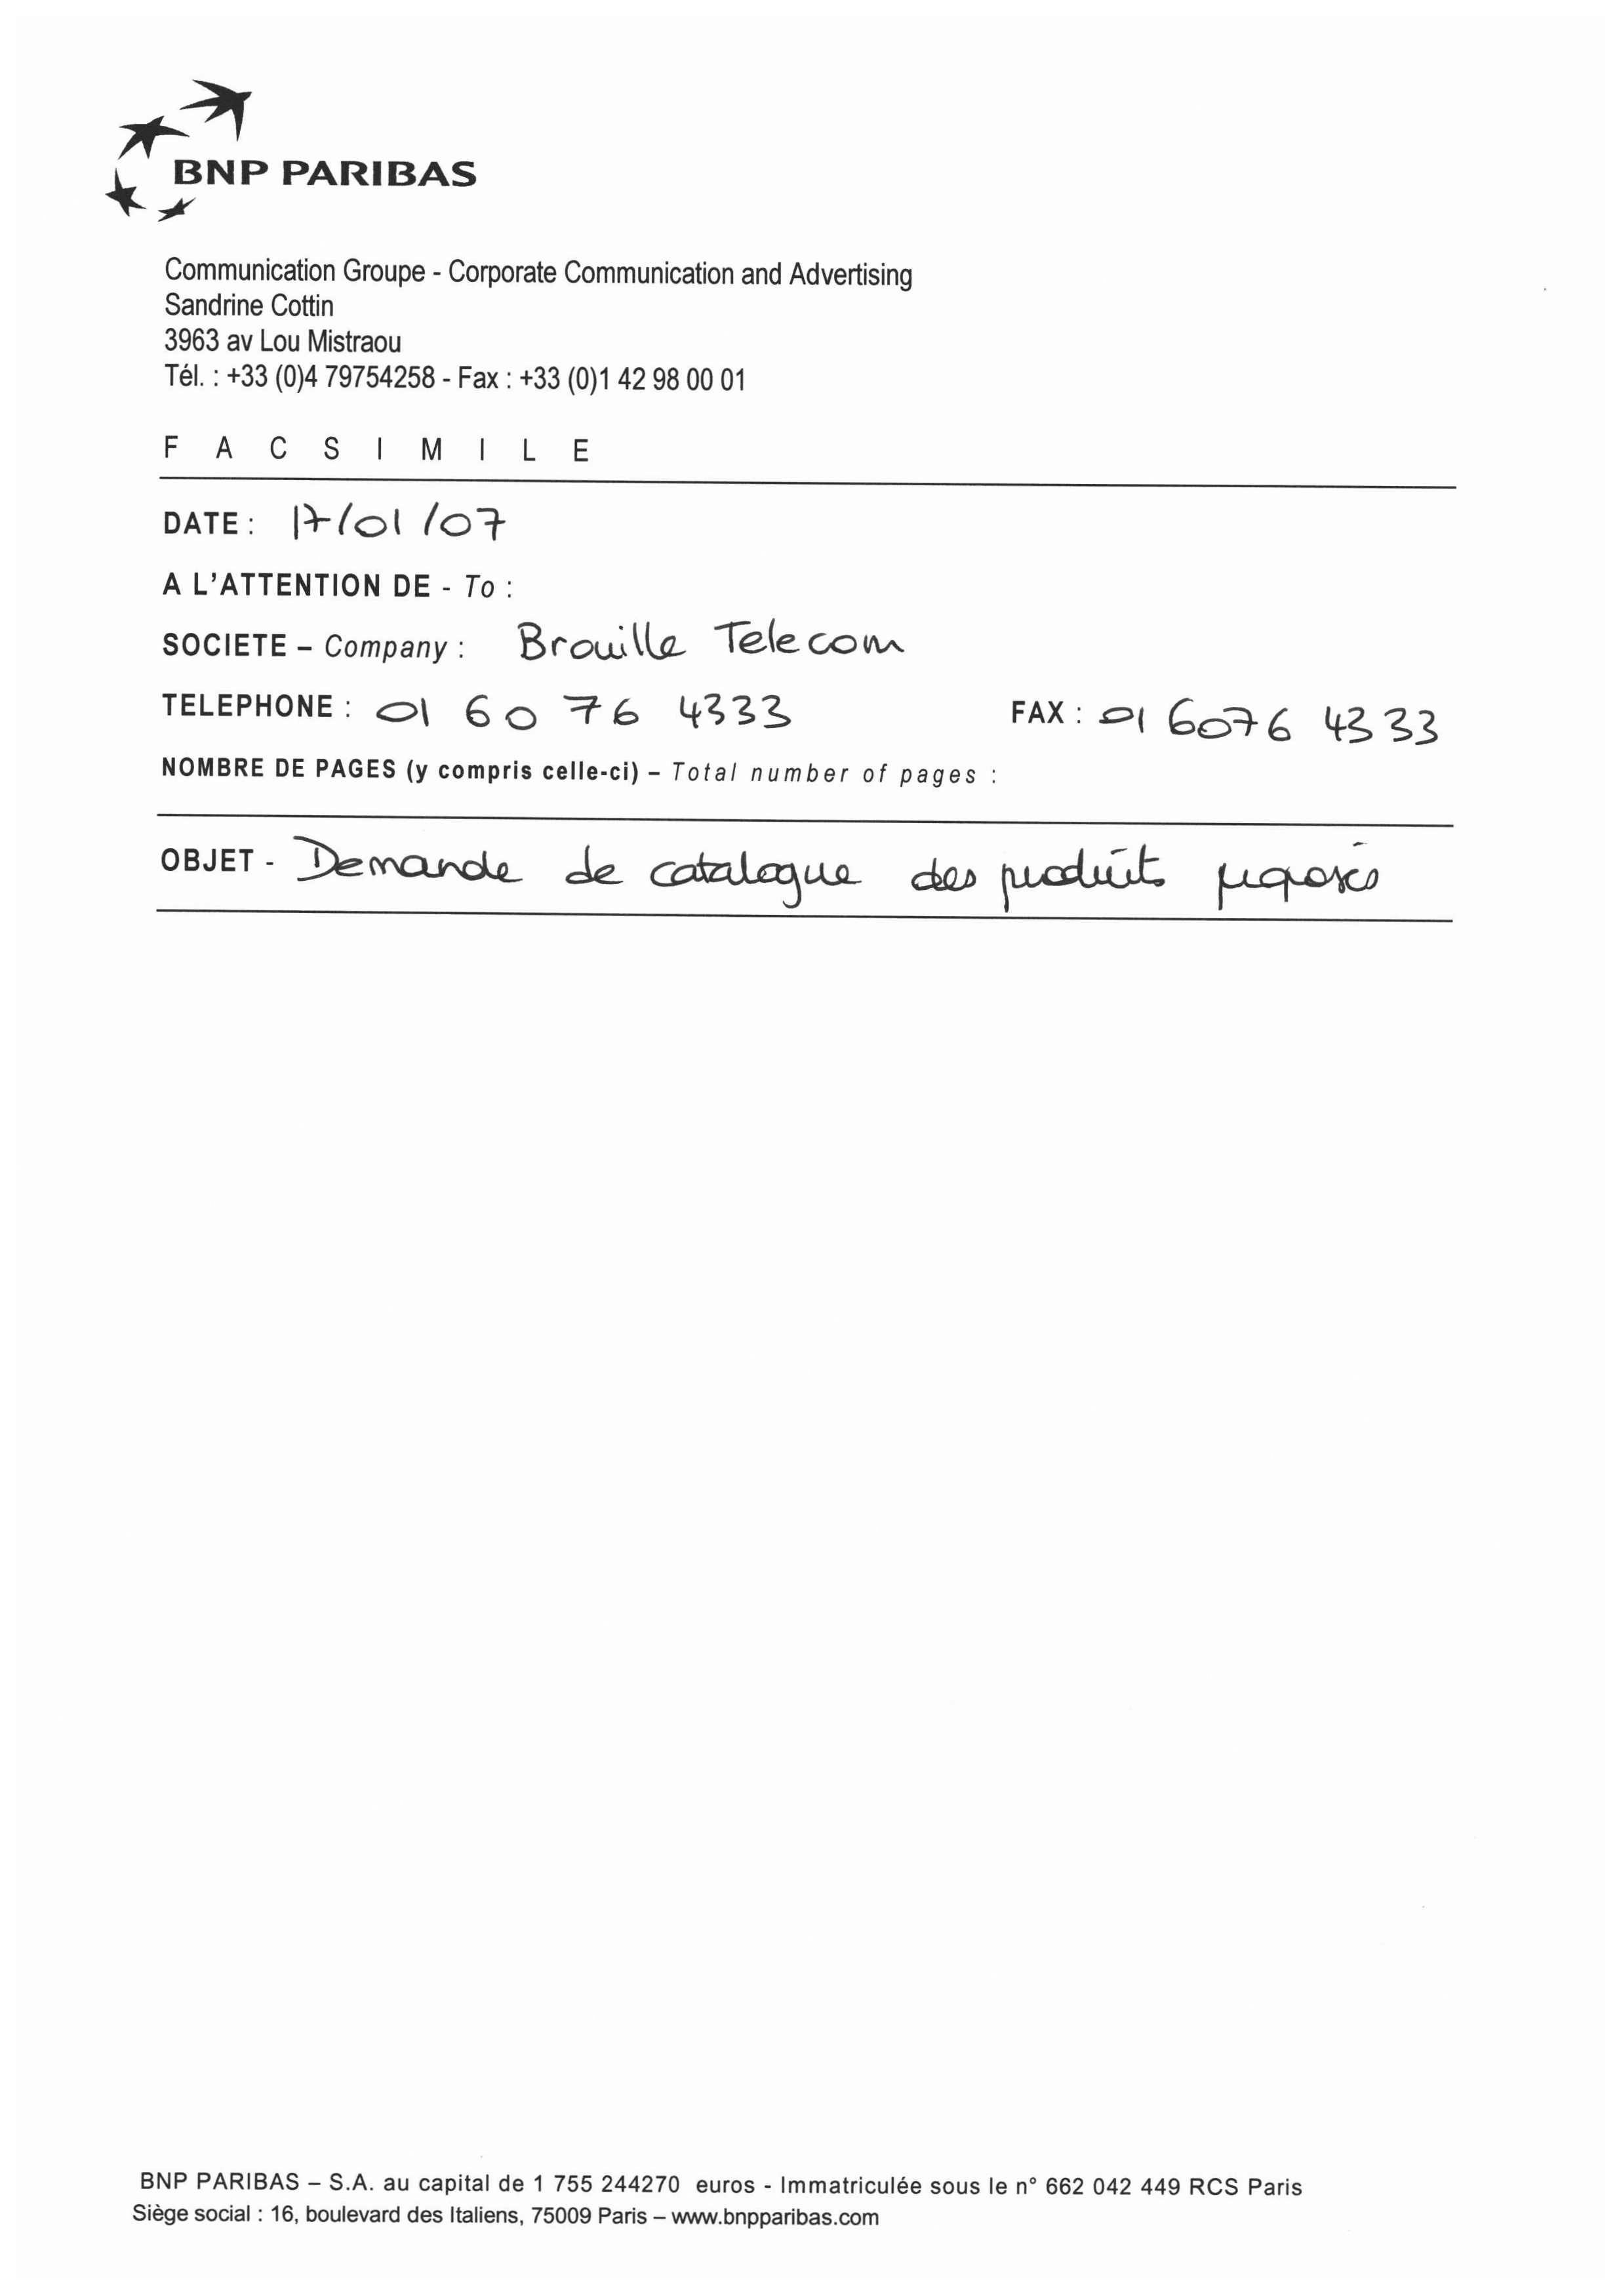 BNP PARIBAS
Communication Groupe - Corporate Communication and Advertising
Sandrine Cottin
3963 av Lou Mistraou
Tél. : +33 (0)4 79754258 - Fax : +33 (0)1 42 98 00 01
F A C S I M I L E
DATE : 17/01/07
A L'ATTENTION DE - To :
SOCIETE – Company : Brouille Telecom
TELEPHONE : 01 60 76 4333 FAX : 01 6076 4333
NOMBRE DE PAGES (y compris celle-ci) – Total number of pages :
OBJET - Demande de catalogue des produits proposés
BNP PARIBAS – S.A. au capital de 1 755 244270 euros - Immatriculée sous le n° 662 042 449 RCS Paris
Siège social : 16, boulevard des Italiens, 75009 Paris – www.bnpparibas.com